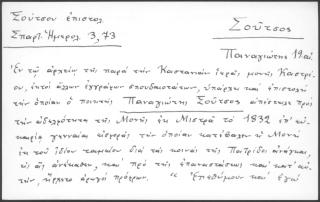 Σούτσου ἐπιστολ.
Σπαρτ. Ἡμερολ. 3, 73
Σοῦτσος
Παναγιώτης 19 αἰ.
Ἐν τῷ ἀρχείῳ τῆς παρὰ τὴν Καστανιὰν ἱερᾶς μονῆς Καστρί-
ου, ἐκτὸς ἄλλων ἐγγράφων σπουδαιοτάτων, ὑπάρχει καὶ ἐπιστολὴ
τὴν ὁποίαν ὁ ποιητὴς Παναγιώτης Σοῦτσος ἀπέστειλε πρὸς
τὴν ἀδελφότητα τῆς Μονῆς ἐκ Μιστρᾶ τὸ 1832 ἐπ' εὐ-
καιρίᾳ γενναίας εἰσφορᾶς τὴν ὁποίαν κατέβαλεν ἡ Μονὴ
ἐκ τοῦ ἰδίου ταμείου διὰ τὰς κοινὰς τῆς Πατρίδος ἀνάγκας
εἰς ἃς ἀνέκαθεν, καὶ πρὸ τῆς ἐπαναστάσεως καὶ κατ' αὐ-
τήν, ἤρχετο ἀρωγὸς πρόθυμος. "Ἐπεθύμουν καὶ ἐγὼ